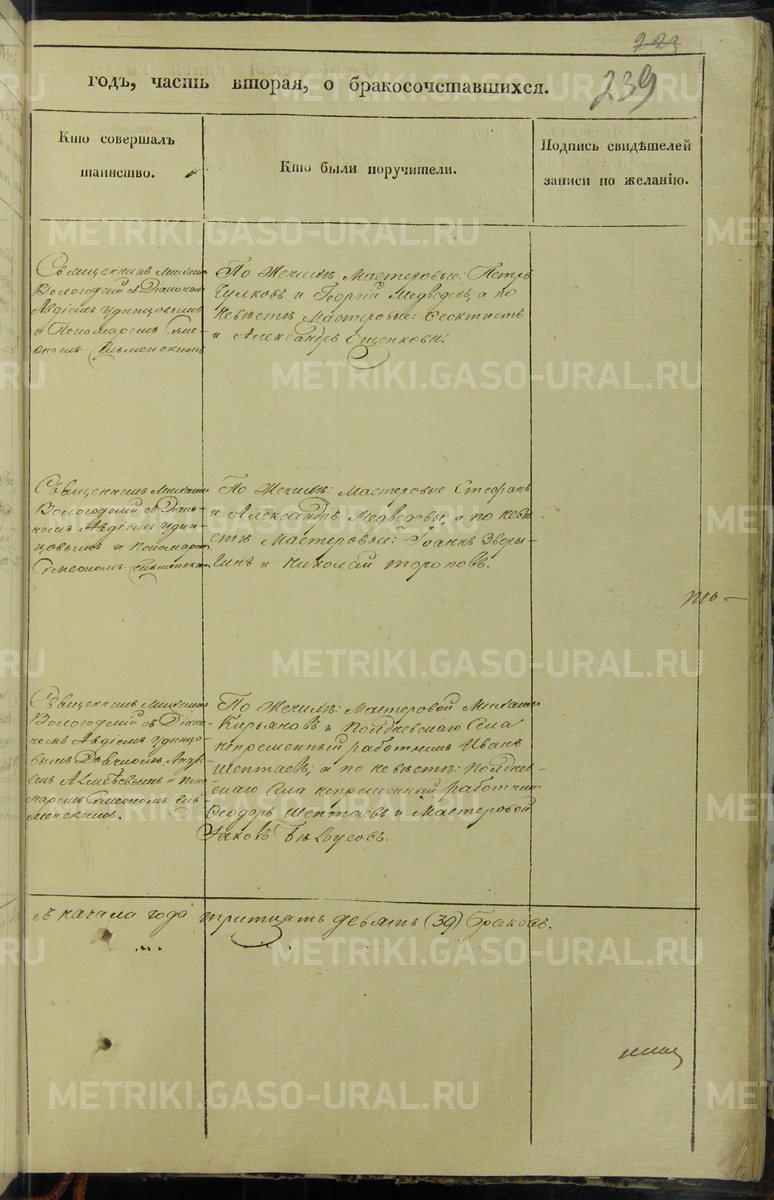 223
239
годъ, часть вторая, о бракосочетавшихся.
Кто совершалъ
таинство.
Кто были поручители.
Подпись свидѣтелей
записи по желанію.
Священникъ Михаилъ
Вологодскій съ Діакономъ
Авдіемъ Удинцовымъ
и Пономаремъ Симе-
ономъ
По Женихѣ Мастеровые: Петръ
Чулковъ и Георгій Медведевъ, а по
Невѣстѣ Мастеровые: Феоктистъ
и Александръ Ощепковы.
Священникъ Михаилъ
Вологодскій съ Діако-
номъ Авдіемъ Удин-
цовымъ и Пономаремъ
Симеономъ
По Женихѣ: Мастеровые Стефанъ
и Александръ Медведевы, а по невѣ-
стѣ Мастеровые: Іоаннъ Зверы-
Николай Тороповъ.
Священникъ Михаилъ
Вологодскій съ Діако-
номъ Авдіемъ Удинцо-
вымъ Дьячкомъ Андре-
емъ и Поно-
маремъ Симеономъ
По Женихѣ: Мастеровой Михаилъ
Кирьяновъ и Полдневскаго Села
непременный работникъ Иванъ
Шептаевъ; а по невѣстѣ: Полднев-
скаго Села непременный работникъ
Ѳеодоръ Шептаевъ и Мастеровой
Іаковъ Бѣлоусовъ.
съ начала года тритцать девять (39) браковъ.
METRIKI.GASO-URAL.RU